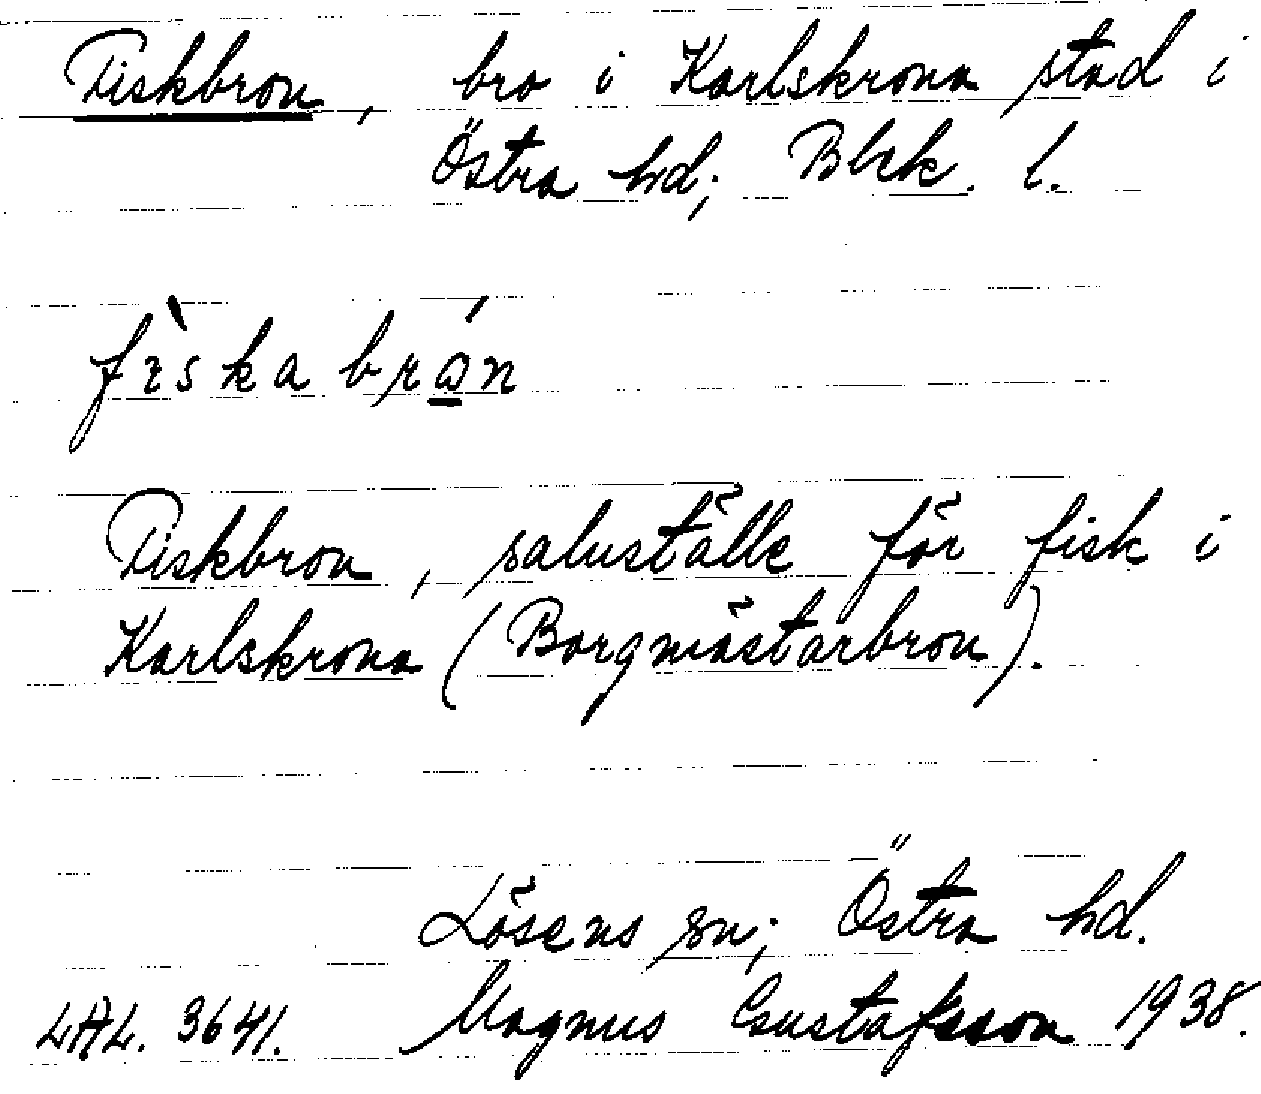 Fiskbron, bro i Karlskrona stad i
Östra hd; Blek. l.
fìskabrá̱n
Fiskbron, saluställe för fisk i
Karlskrona (Borgmästarbron).
Lösens sn; Östra hd.
LAL. 3641. Magnus Gustafsson 1938.